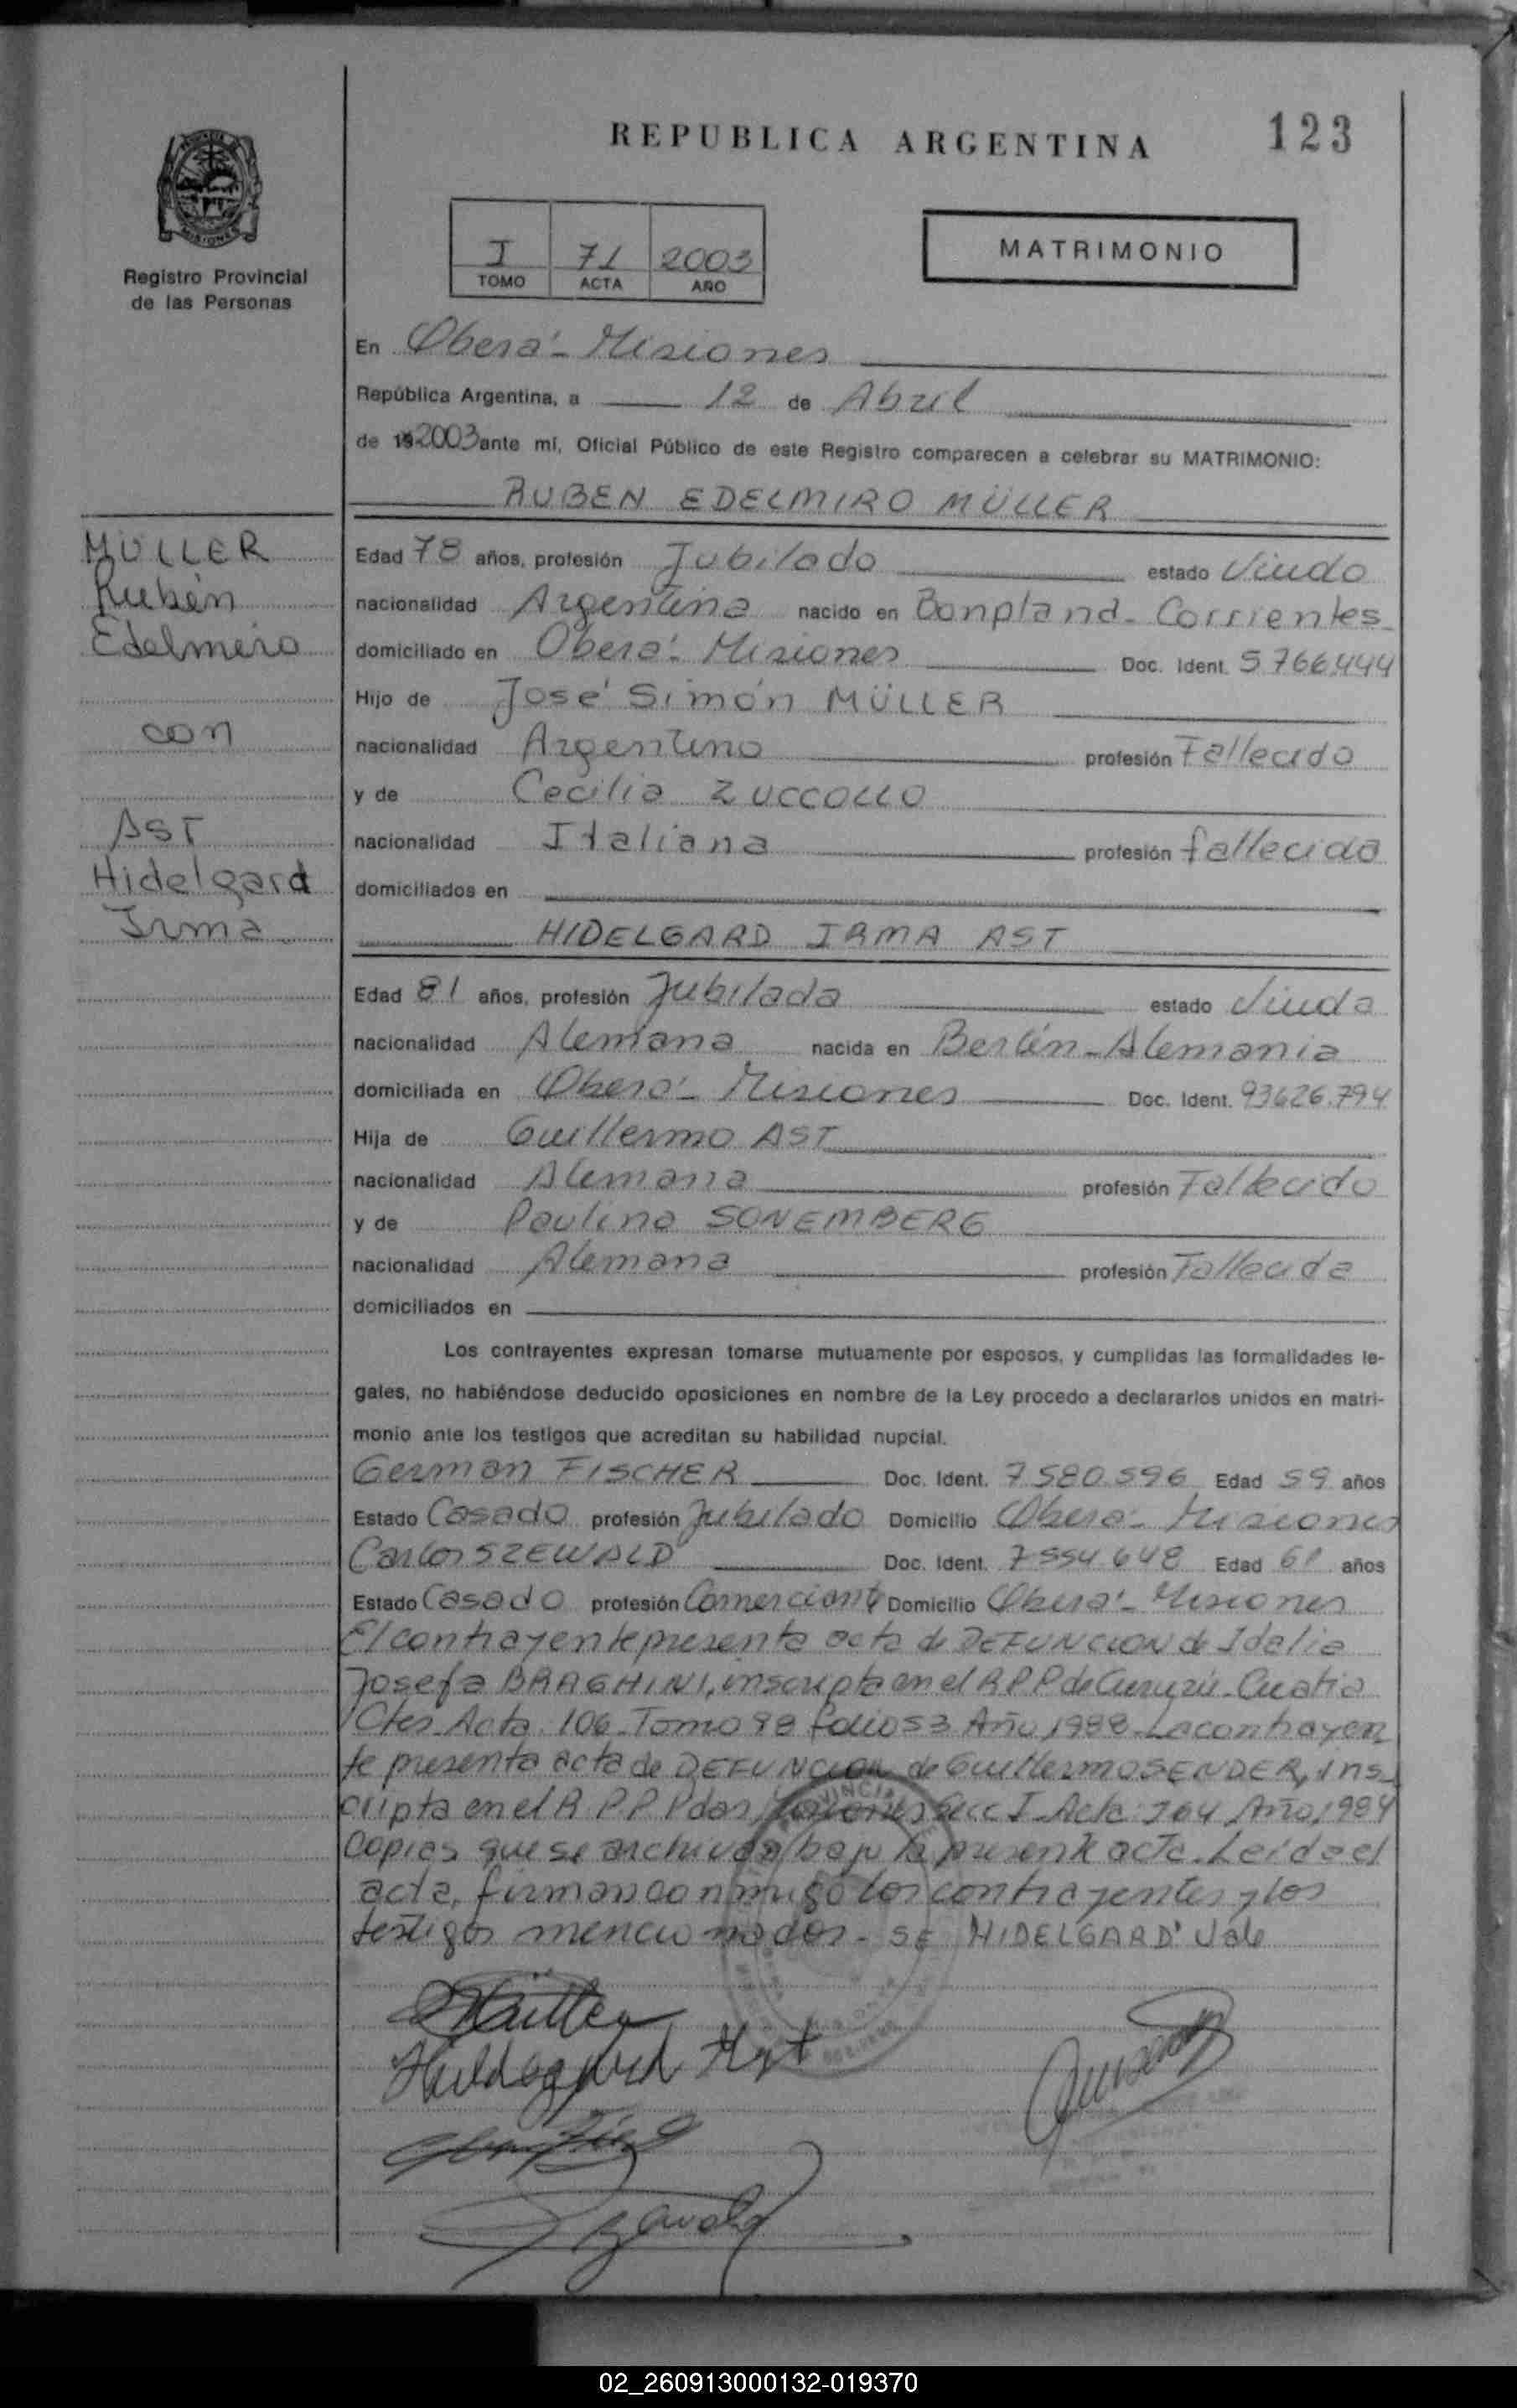 REPUBLICA ARGENTINA
123
MISIONES
Registro Provincial
de las Personas
I 71 2003
TOMO ACTA AÑO
MATRIMONIO
En Oberá - Misiones
República Argentina, a 12 de Abril
de 19 2003 ante mí, Oficial Público de este Registro comparecen a celebrar su MATRIMONIO:
RUBEN EDELMIRO MÜLLER
MÜLLER
Rubén
Edelmiro
con
AST
Hidelgard
Irma
Edad 78 años, profesión Jubilado estado Viudo
nacionalidad Argentina nacido en Bonpland - Corrientes
domiciliado en Oberá - Misiones Doc. Ident. 5.766.444
Hijo de José Simón MÜLLER
nacionalidad Argentino profesión Fallecido
y de Cecilia ZUCCOLLO
nacionalidad Italiana profesión fallecida
domiciliados en
HIDELGARD IRMA AST
Edad 81 años, profesión Jubilada estado Viuda
nacionalidad Alemana nacida en Berlín - Alemania
domiciliada en Oberá - Misiones Doc. Ident. 93626.794
Hija de Guillermo AST
nacionalidad Alemana profesión Fallecido
y de Paulina SONEMBERG
nacionalidad Alemana profesión Fallecida
domiciliados en
Los contrayentes expresan tomarse mutuamente por esposos, y cumplidas las formalidades le-
gales, no habiéndose deducido oposiciones en nombre de la Ley procedo a declararlos unidos en matri-
monio ante los testigos que acreditan su habilidad nupcial.
German FISCHER Doc. Ident. 7.580.596 Edad 59 años
Estado Casado profesión Jubilado Domicilio Oberá - Misiones
Carlos SZEWALD Doc. Ident. 7554648 Edad 61 años
Estado Casado profesión Comerciante Domicilio Oberá - Misiones
El contrayente presenta acta de DEFUNCION de Idalia
Josefa BRAGHINI, inscripta en el R P P de Curuzú - Cuatia
Ctes. Acta 106 - Tomo 98 folio 53 Año 1988 - La contrayen
te presenta acta de DEFUNCION de Guillermo SENDER, ins-
cripta en el R P P Secc I Acta: 164 Año, 1984
Copias que se archivan bajo la presente acta. Leída el
acta, firman conmigo los contrayentes y los
testigos mencionados - SE HIDELGARD' Vale
Müller
Hildegard Ast
02_260913000132-019370